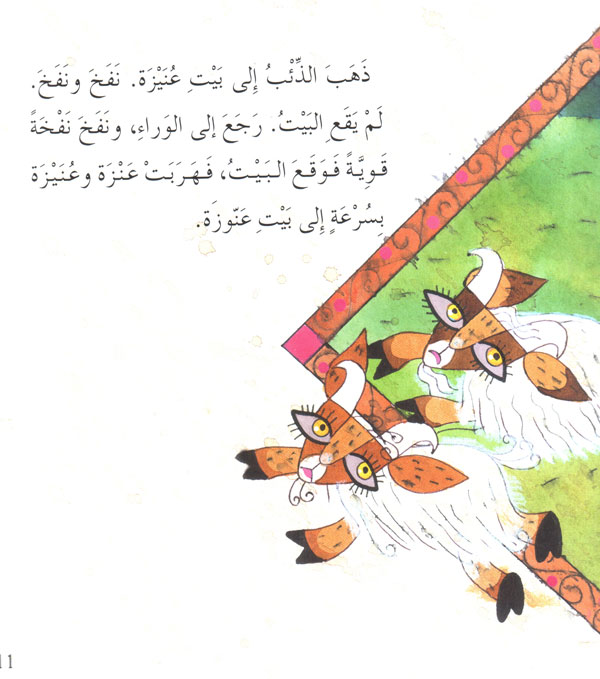 ذَهَبَ الذِّئْبُ إِلى بَيْتِ عُنَيْزَة. نَفَخَ ونَفَخَ.
لَمْ يَقَعِ البَيْتُ. رَجَعَ إلى الوَراءِ، ونَفَخَ نَفْخَةً
قَوِيَّةً فَوَقَعَ البَيْتُ، فَهَرَبَتْ عَنْزَة وعُنَيْزَة
بِسُرْعَةٍ إِلى بَيْتِ عَنّوزَة.
11